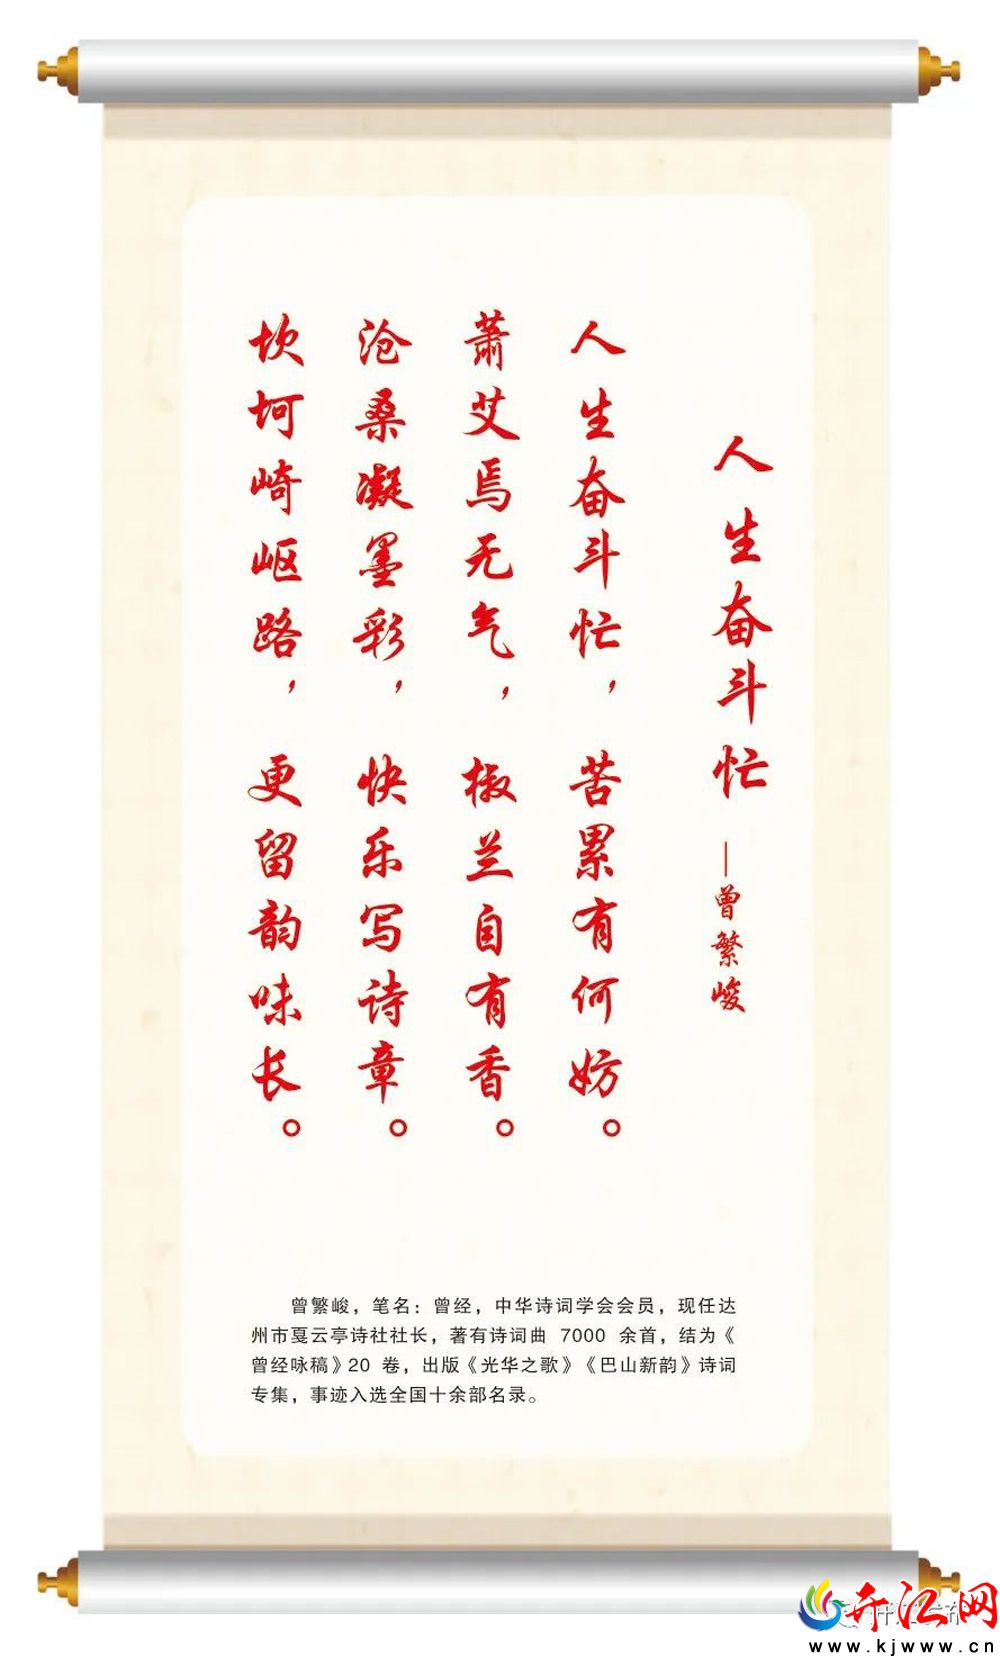 人生奋斗忙 —曾繁峻
人生奋斗忙，苦累有何妨。
萧艾焉无气，椒兰自有香。
沧桑凝墨彩，快乐写诗章。
坎坷崎岖路，更留韵味长。
曾繁峻，笔名：曾经，中华诗词学会会员，现任达
州市戛云亭诗社社长，著有诗词曲 7000 余首，结为《
曾经咏稿》20 卷，出版《光华之歌》《巴山新韵》诗词
专集，事迹入选全国十余部名录。
开江网
www.kjwww.cn